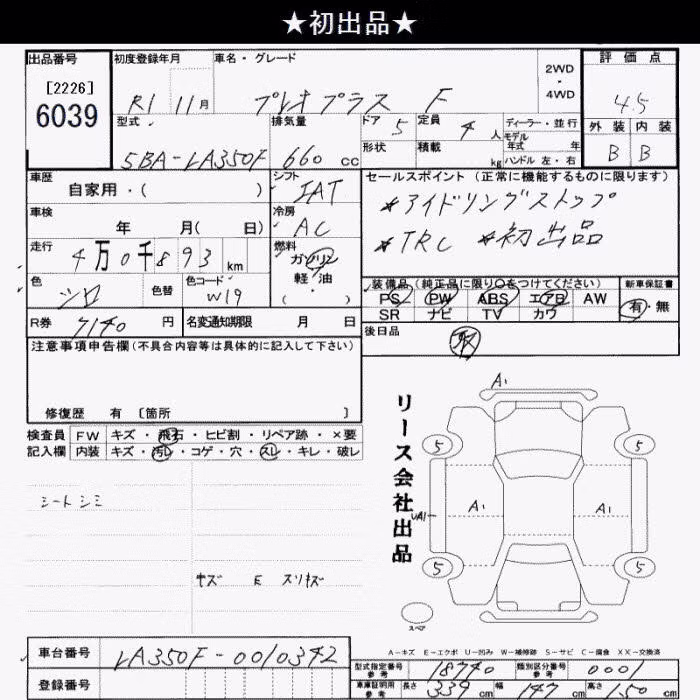 ★初出品★
出品番号 初度登録年月 車名・グレード 2WD・4WD 評価点
[2226]
6039
R1 11月 プレオプラス F 4.5
型式 排気量 ドア 5 定員 4 人 ディーラー・並行 外装 内装
モデル年式 年
5BA-LA350F 660 cc 形状 積載 kg ハンドル 左・右 B B
車歴 シフト セールスポイント (正常に機能するものに限ります)
自家用・( ) IAT *アイドリングストップ
車検 冷房
年 月( 日) AC *TRC *初出品
走行 燃料
4万0千893km ガソリン
軽・油
・( )
色 色替 色コード 装備品(純正品に限り○をつけてください) 新車保証書
シロ W19 PS PW ABS エアB AW 有・無
SR ナビ TV カワ
R券 7140 円 名変通知期限 月 日 後日品
取
注意事項申告欄(不具合内容等は具体的に記入して下さい)
修復歴 有 [箇所 ]
検査員 FW キズ・飛石・ヒビ割・リペア跡・×要
記入欄 内装 キズ・汚レ・コゲ・穴・スレ・キレ・破レ
シートシミ
キズ E スリキズ
リース会社出品
A1
5 5
UA1 A1 A1
5 5
スペア
A-キズ E-エクボ U-凹み W-補修跡 S-サビ C-腐食 XX-交換済
車台番号 LA350F-0010342
型式指定番号 参考 18740 類別区分番号 参考 0001
登録番号 車庫証明用 参考 長さ 339 cm 幅 147 cm 高さ 150 cm